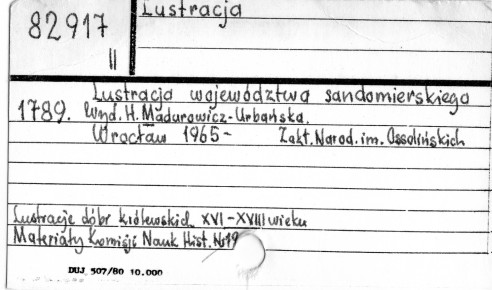 82917
II
Lustracja
Lustracja województwa sandomierskiego
1789. Wyd. H. Madurowicz-Urbańska.
Wrocław 1965- Zakł. Narod. im. Ossolińskich
Lustracje dóbr królewskich XVI-XVIII wieku
Materiały Komisji Nauk Hist. Nr 19
DUJ 507/80 10.000